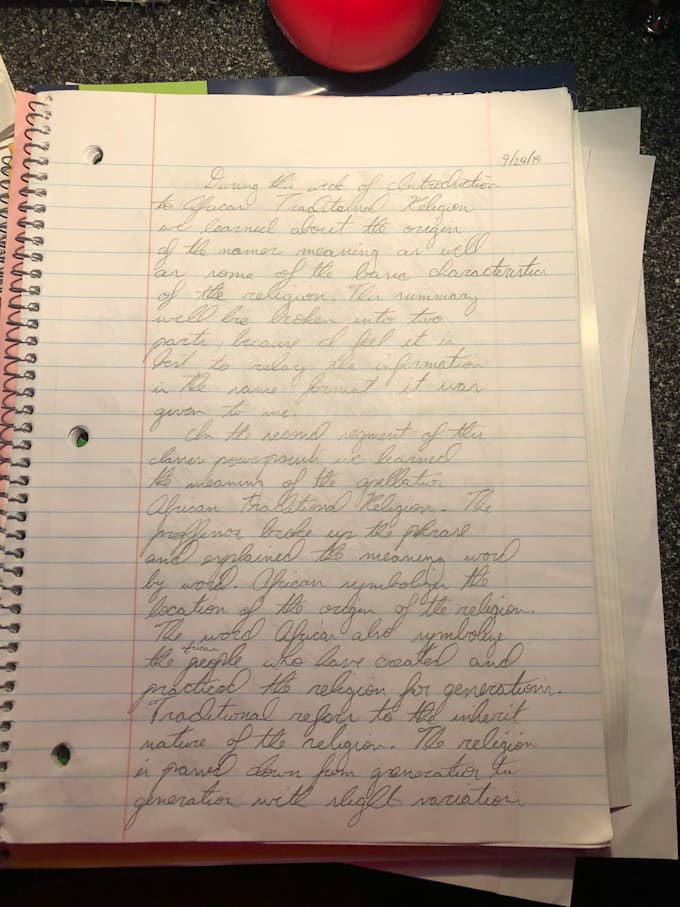 9/29/19
During this week of Introduction
to African Traditional Religion
we learned about the origin
of the names meaning as well
as some of the basic characteristics
of the religion. This summary
will be broken into two
parts, because I feel it is
best to relay the information
in the same format it was
given to me.
In the second segment of this
classes powerpoint we learned
the meaning of the apellation
African Traditional Religion. The
proffessor broke up the phrase
and explained the meaning word
by word. African symbolizes the
location of the origin of the religion.
The word African also symbolize
the African people who have created and
practiced the religion for generations.
Traditional refers to the inherit
nature of the religion. The religion
is passed down from generation to
generation with slight variations